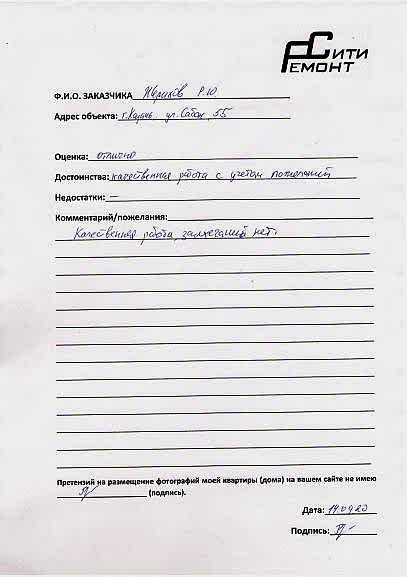 СИТИ
РЕМОНТ
Ф.И.О. ЗАКАЗЧИКА Р.Ю
Адрес объекта: г.Казань, ул. 55
Оценка: отлично
Достоинства: качественная работа с учетом пожеланий
Недостатки: —
Комментарий/пожелания:
Качественная работа, замечаний нет.
Претензий на размещение фотографий моей квартиры (дома) на вашем сайте не имею
(подпись).
Дата: 14.09.20
Подпись: